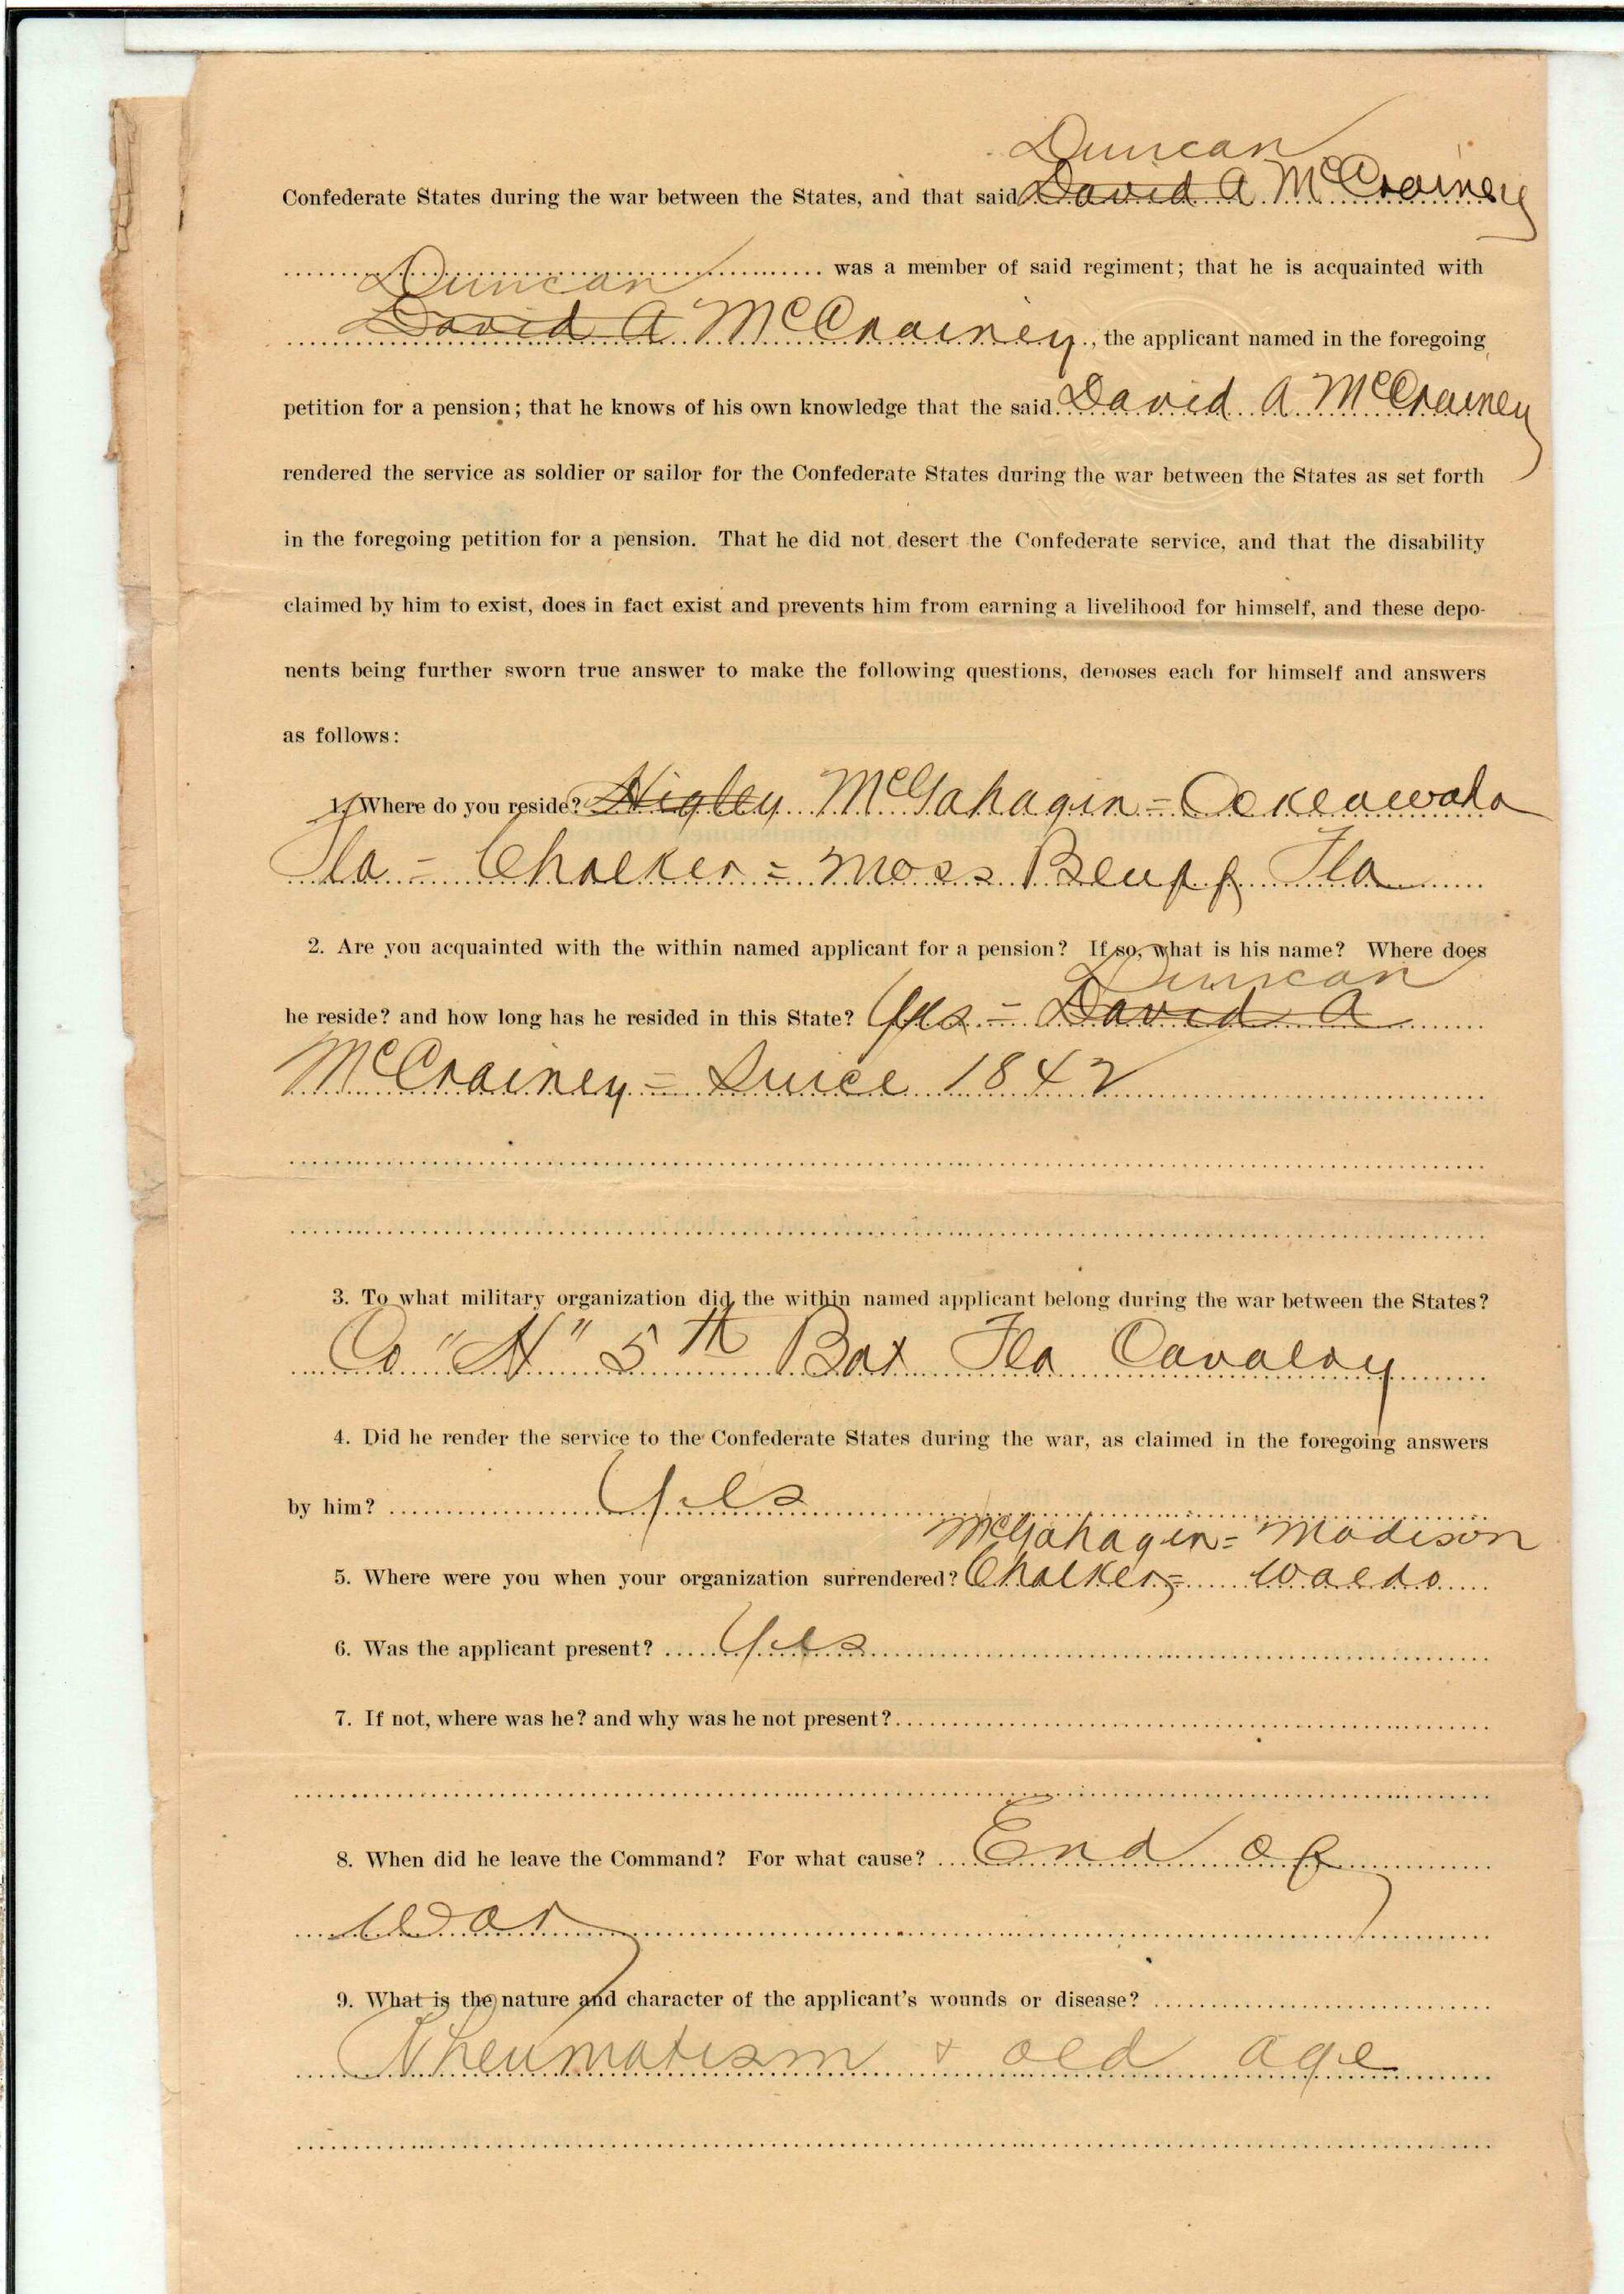 Duncan
Confederate States during the war between the States, and that said David A McCrainey
was a member of said regiment; that he is acquainted with
Duncan
David A McCrainey, the applicant named in the foregoing
petition for a pension; that he knows of his own knowledge that the said David A McCrainey
rendered the service as soldier or sailor for the Confederate States during the war between the States as set forth
in the foregoing petition for a pension. That he did not desert the Confederate service, and that the disability
claimed by him to exist, does in fact exist and prevents him from earning a livelihood for himself, and these depo-
nents being further sworn true answer to make the following questions, deposes each for himself and answers
as follows:
1. Where do you reside? Higley McGahagin = Ocklawaha
Fla = Chalker = Moss Bluff Fla
2. Are you acquainted with the within named applicant for a pension? If so, what is his name? Where does
Duncan
he reside? and how long has he resided in this State? Yes = David A
McCrainey = Since 1842
3. To what military organization did the within named applicant belong during the war between the States?
Co "H" 5th Bat Fla Cavalry
4. Did he render the service to the Confederate States during the war, as claimed in the foregoing answers
by him? Yes
McGahagin = Madison
5. Where were you when your organization surrendered? Chalker = Waldo
6. Was the applicant present? Yes
7. If not, where was he? and why was he not present?
8. When did he leave the Command? For what cause? End of
War
9. What is the nature and character of the applicant's wounds or disease?
Rheumatism & old age